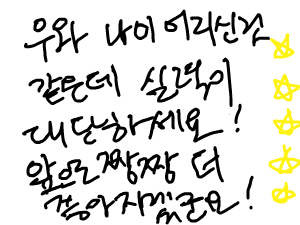 우와 나이 어리신것
같은데 실력이
대단하세요!
앞으로 짱짱 더
좋아지겠군요!